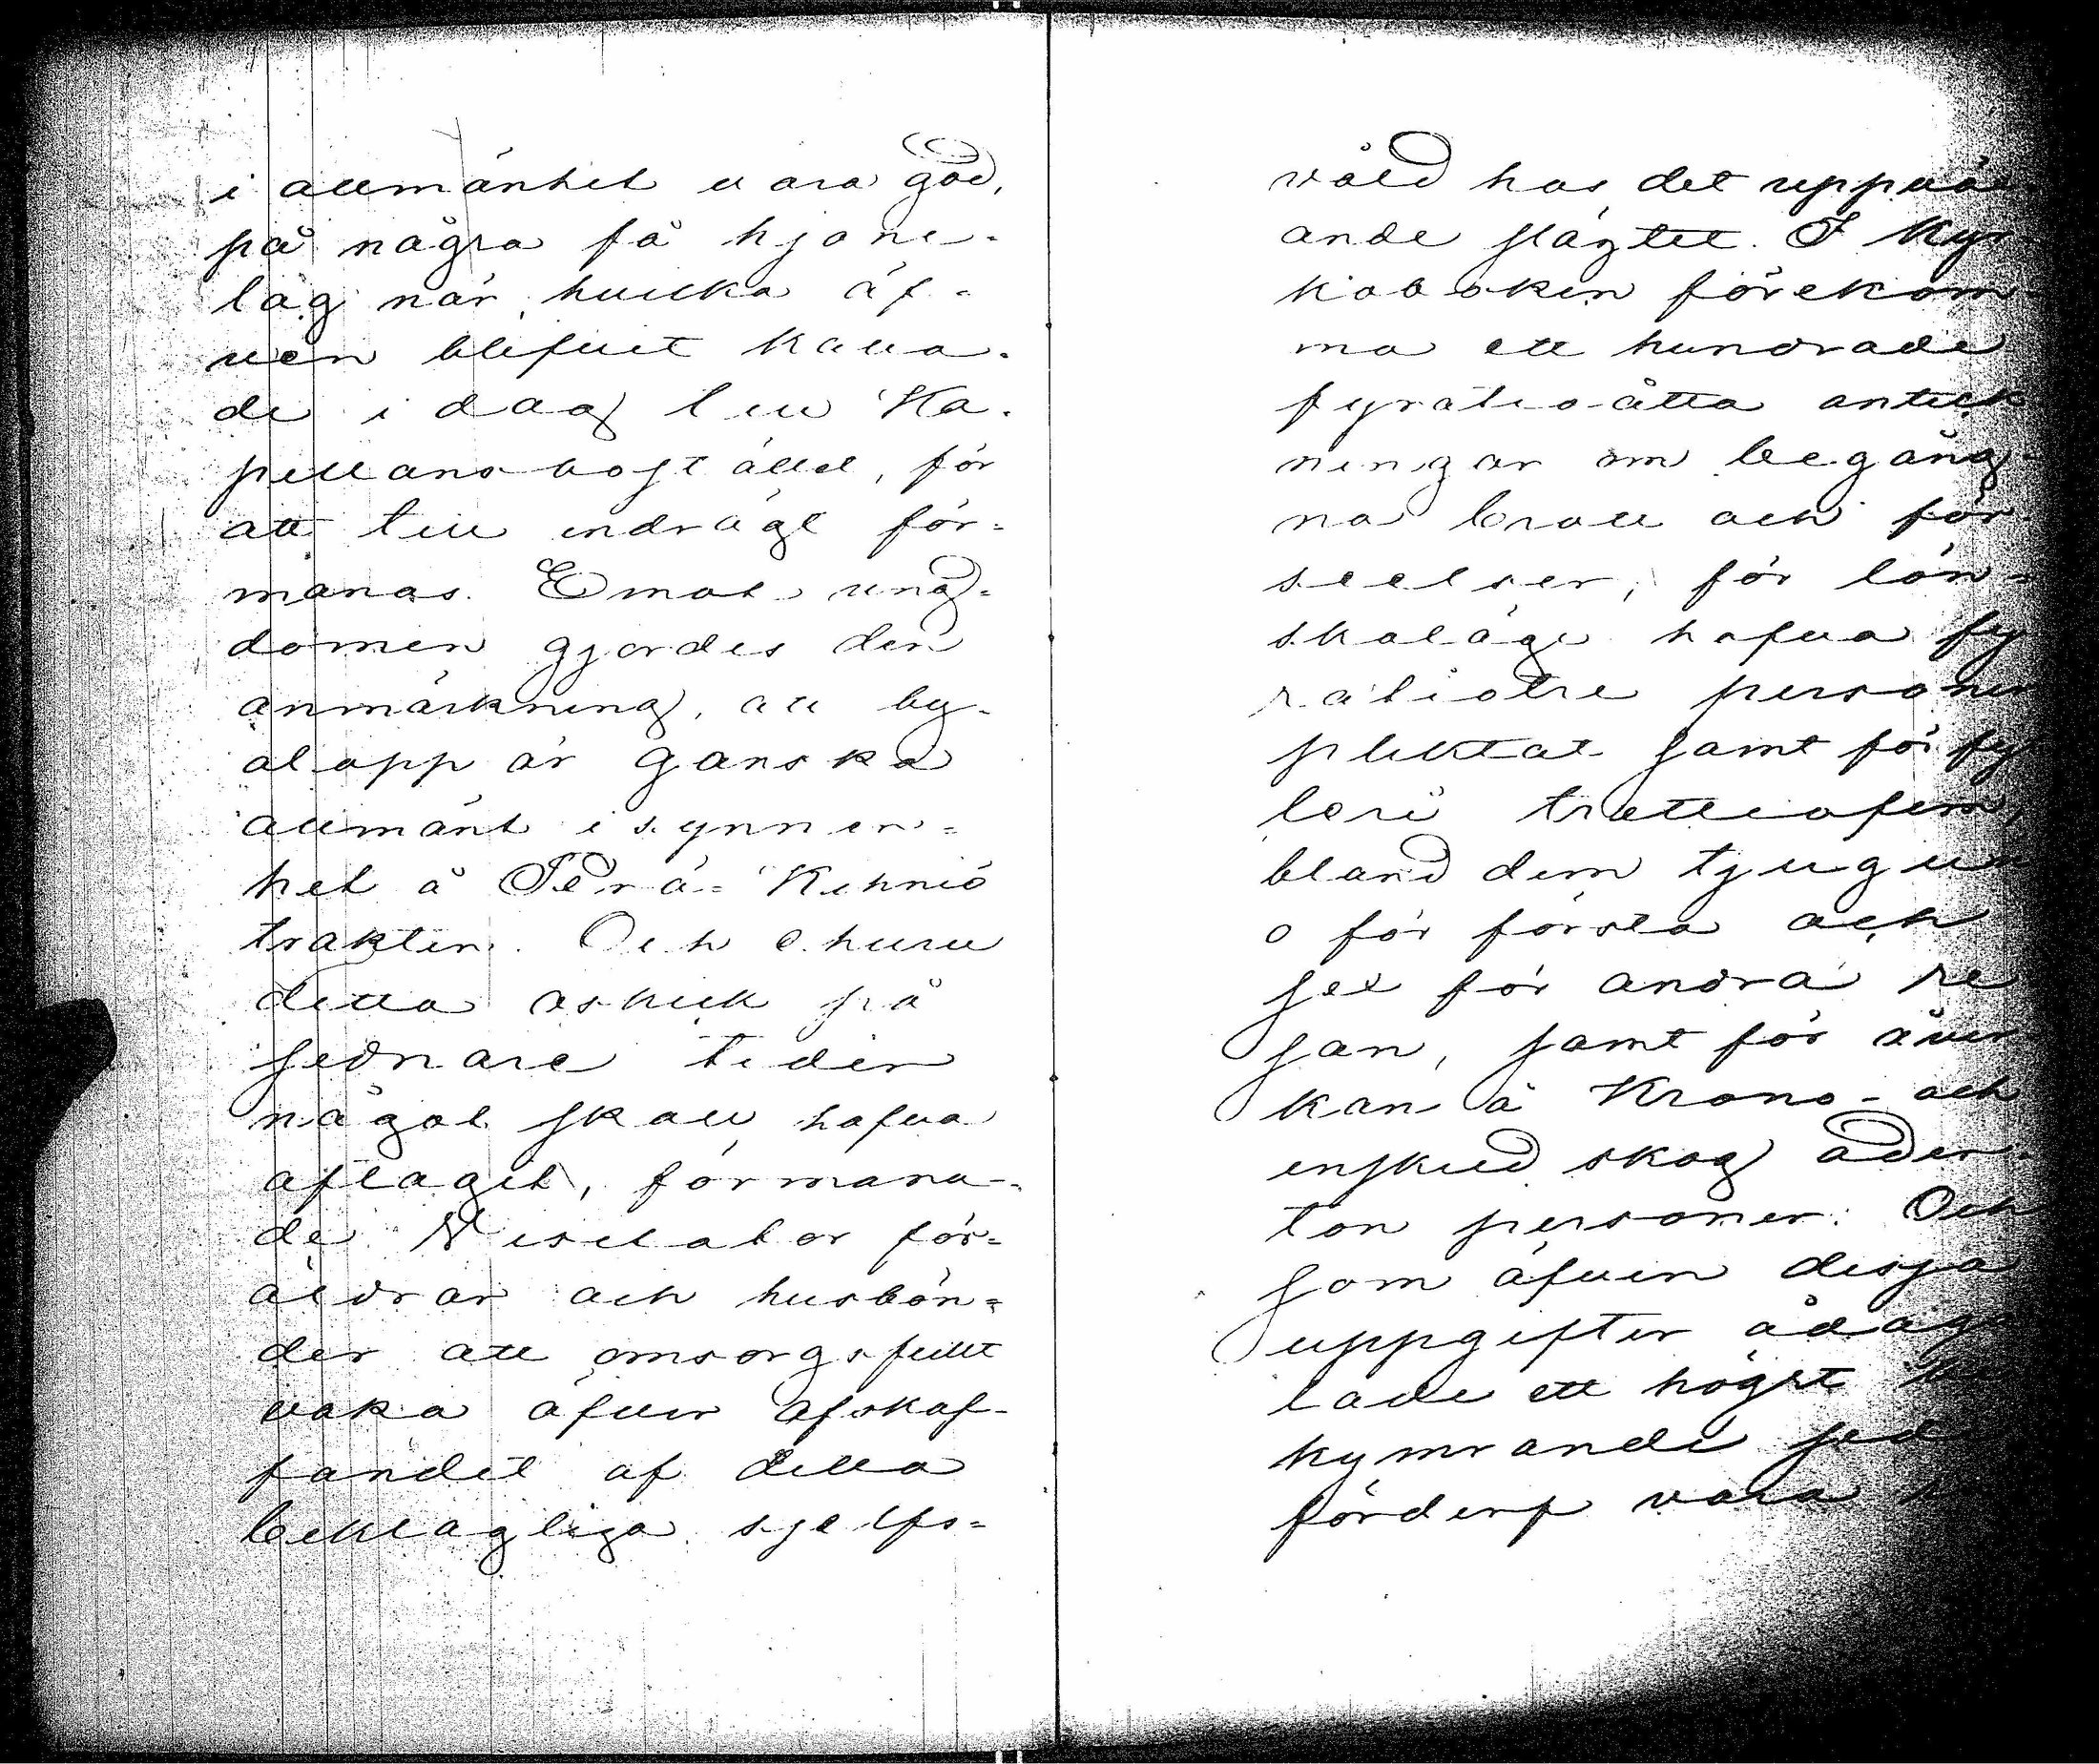 i allmänhet vara god,
på några få hjone-
lag när, hvilka äf-
ven blifvit kalla-
de i dag till Ka-
pellansbostället, för
att till endrägt för-
manas. Emot ung-
domen gjordes den
anmärkning, att by-
alopp är ganska
allmänt i synner-
het å Perä-Kihniö
trakten. Och ehuru
detta oskick på
sednare tider
något skall hafva
aftagit, förmana-
de Visitator för-
äldrar och husbön-
der att omsorgsfullt
vaka öfver afskaf-
fandet af detta
beklagliga sjelfs-
våld hos det uppväx-
ande slägtet. I Kyr-
koboken förekom-
ma ett hundrade
fyratioåtta anteck-
ningar om begång-
na brott och för-
seelser; för lön-
skaläge hafva fy-
ratiotre personer
pliktat samt för fyl-
leri trettiofem,
bland dem tjugun-
o för första och
sex för andra re-
san, samt för åver-
kan å Krono- och
enskild skog ader-
ton personer. Och
som äfven dessa
uppgifter ådaga-
lade ett högst be-
kymrande sed
förderf vara